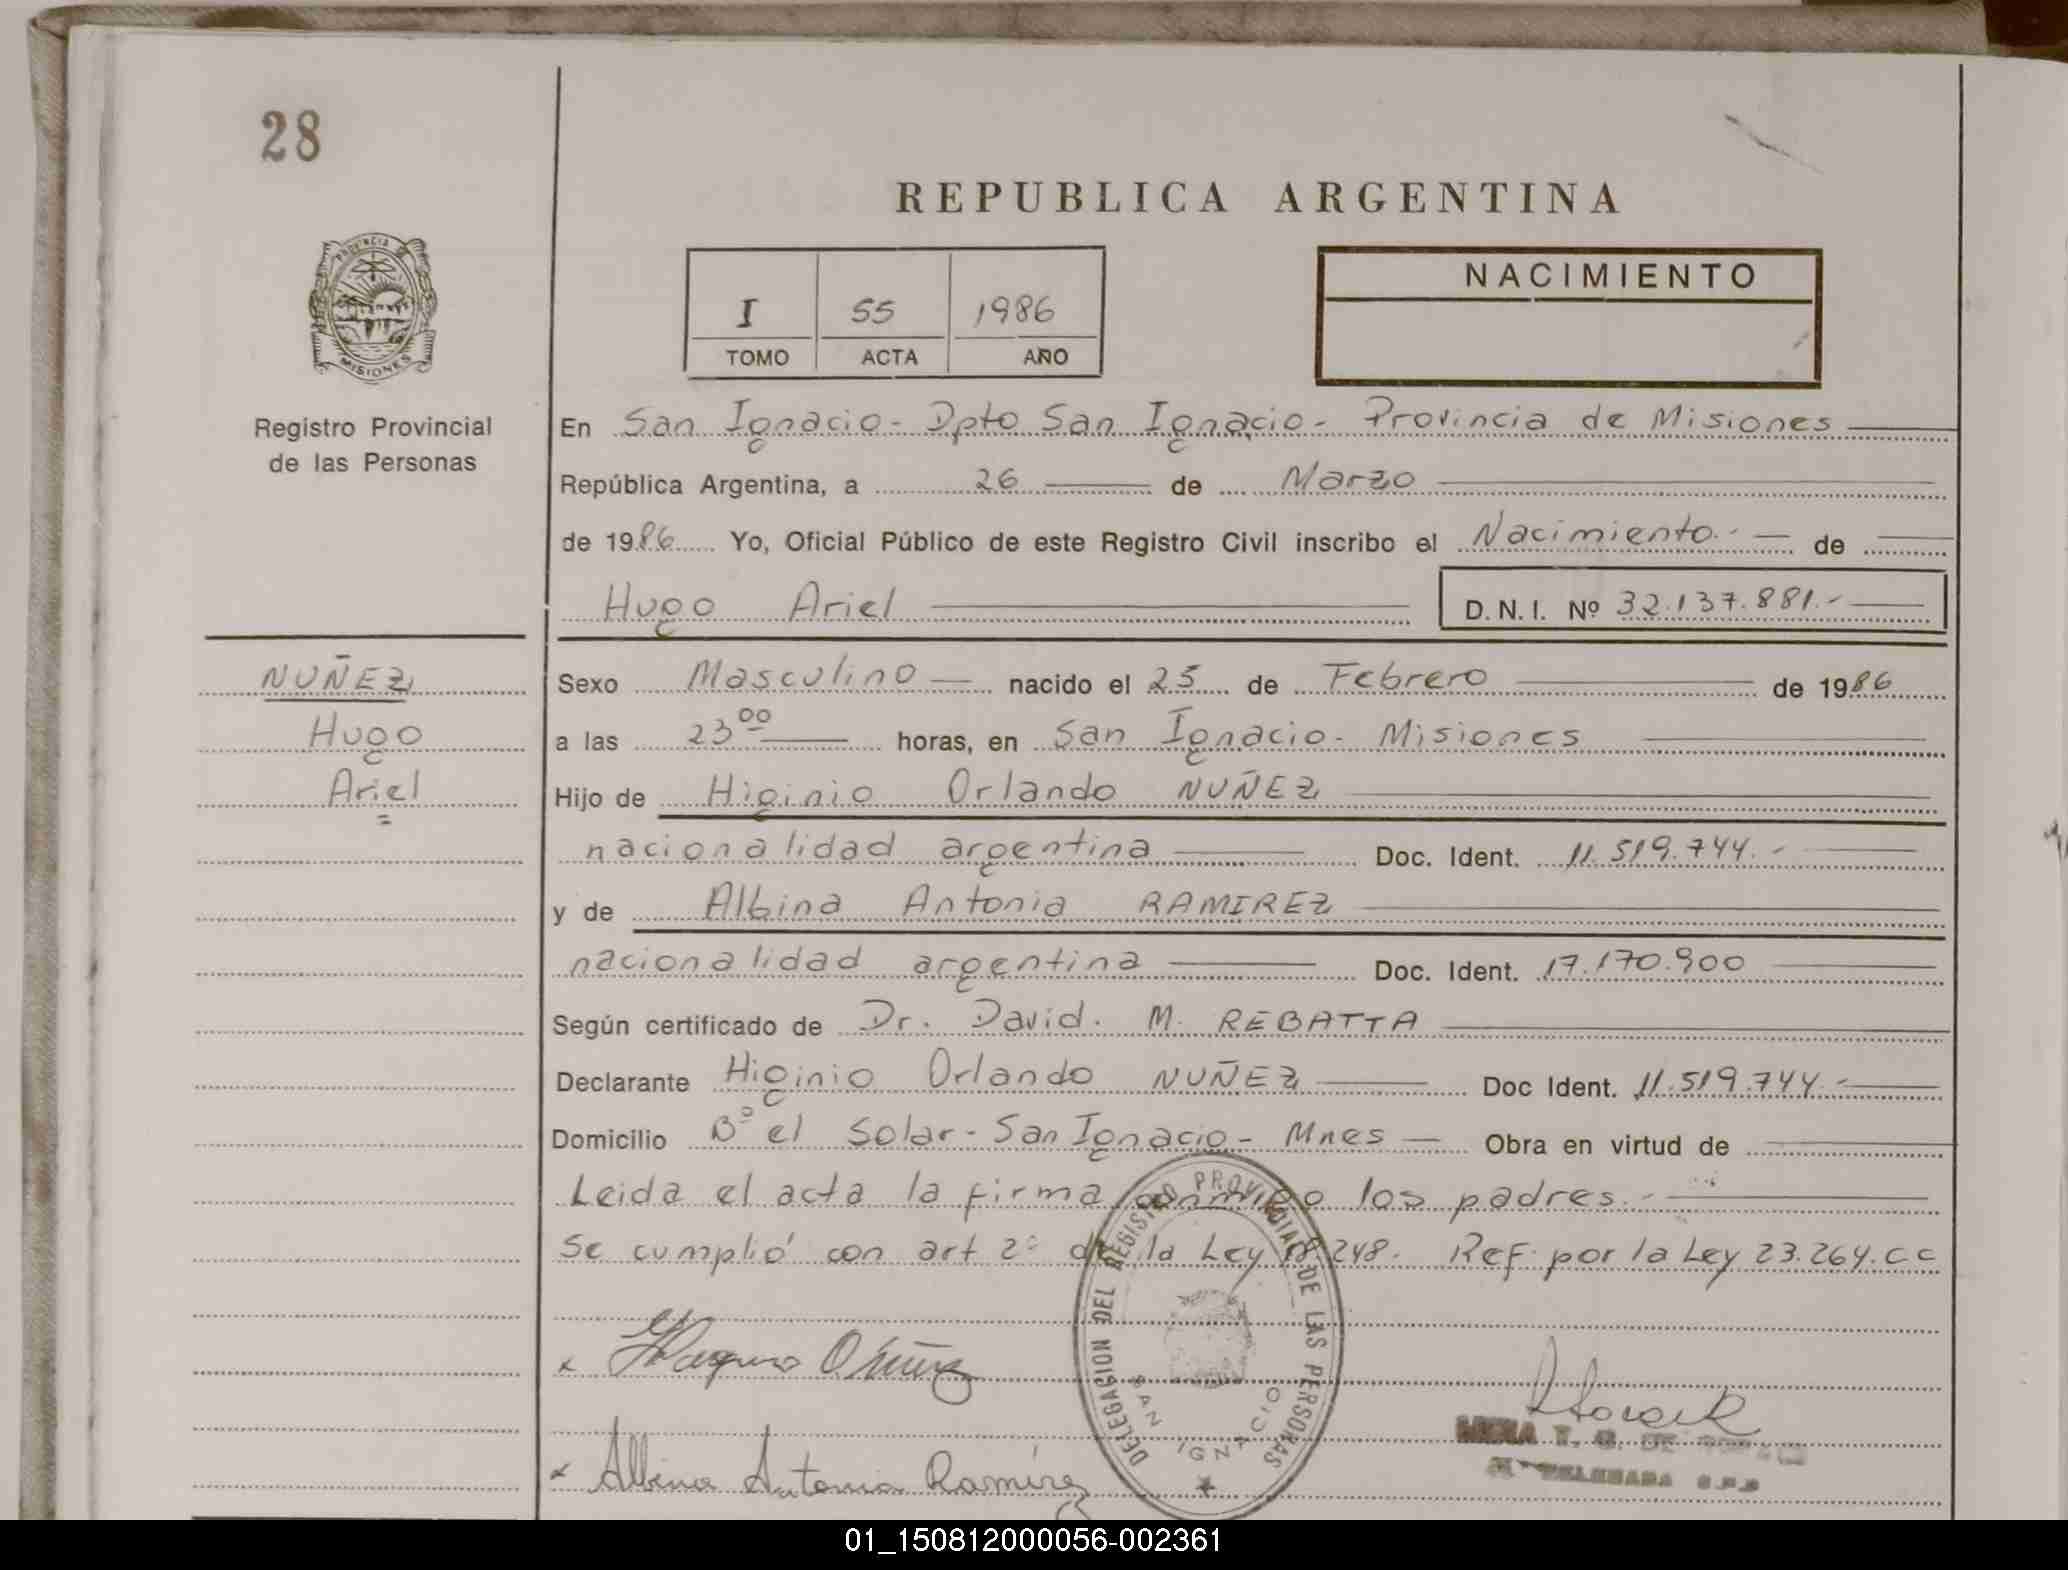 28
REPUBLICA ARGENTINA
PROVINCIA DE
MISIONES
I 55 1986
TOMO ACTA AÑO
NACIMIENTO
Registro Provincial
de las Personas
En San Ignacio - Dpto San Ignacio - Provincia de Misiones
República Argentina, a 26 de Marzo
de 1986 Yo, Oficial Público de este Registro Civil inscribo el Nacimiento.- de
Hugo Ariel D.N.I. Nº 32.137.881.-
NUÑEZ
Hugo
Ariel
Sexo Masculino nacido el 25 de Febrero de 1986
a las 23 00 horas, en San Ignacio - Misiones
Hijo de Higinio Orlando NUÑEZ
nacionalidad argentina Doc. Ident. 11.519.744.-
y de Albina Antonia RAMIREZ
nacionalidad argentina Doc. Ident. 17.170.900
Según certificado de Dr. David. M. REBATTA
Declarante Higinio Orlando NUÑEZ Doc Ident. 11.519.744.-
Domicilio Bº el Solar - San Ignacio - Mnes Obra en virtud de
Leida el acta la firma conmigo los padres.-
Se cumplió con art 2º de la Ley 18.248. Ref. por la Ley 23.264. CC
DELEGACION DEL REGISTRO PROVINCIAL DE LAS PERSONAS
SAN IGNACIO
x O. Núñez
x Albina Antonia Ramírez
01_150812000056-002361